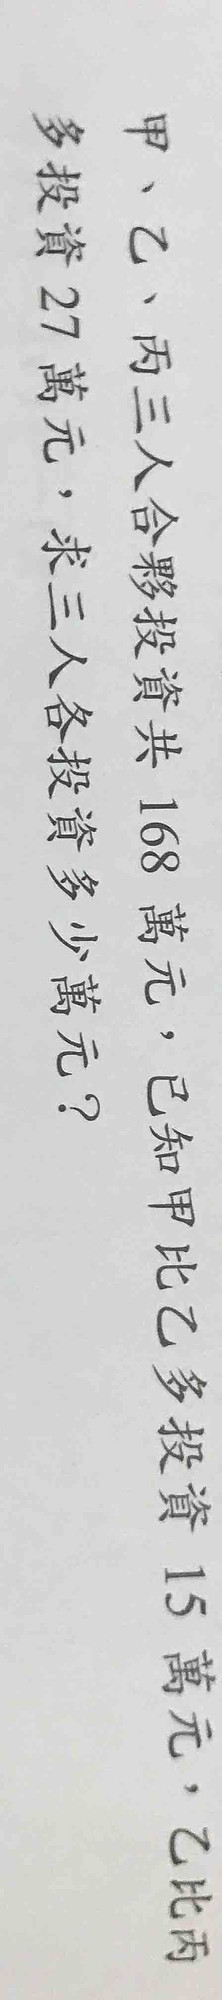 甲、乙、丙三人合夥投資共 168 萬元，已知甲比乙多投資 15 萬元，乙比丙
多投資 27 萬元，求三人各投資多少萬元？